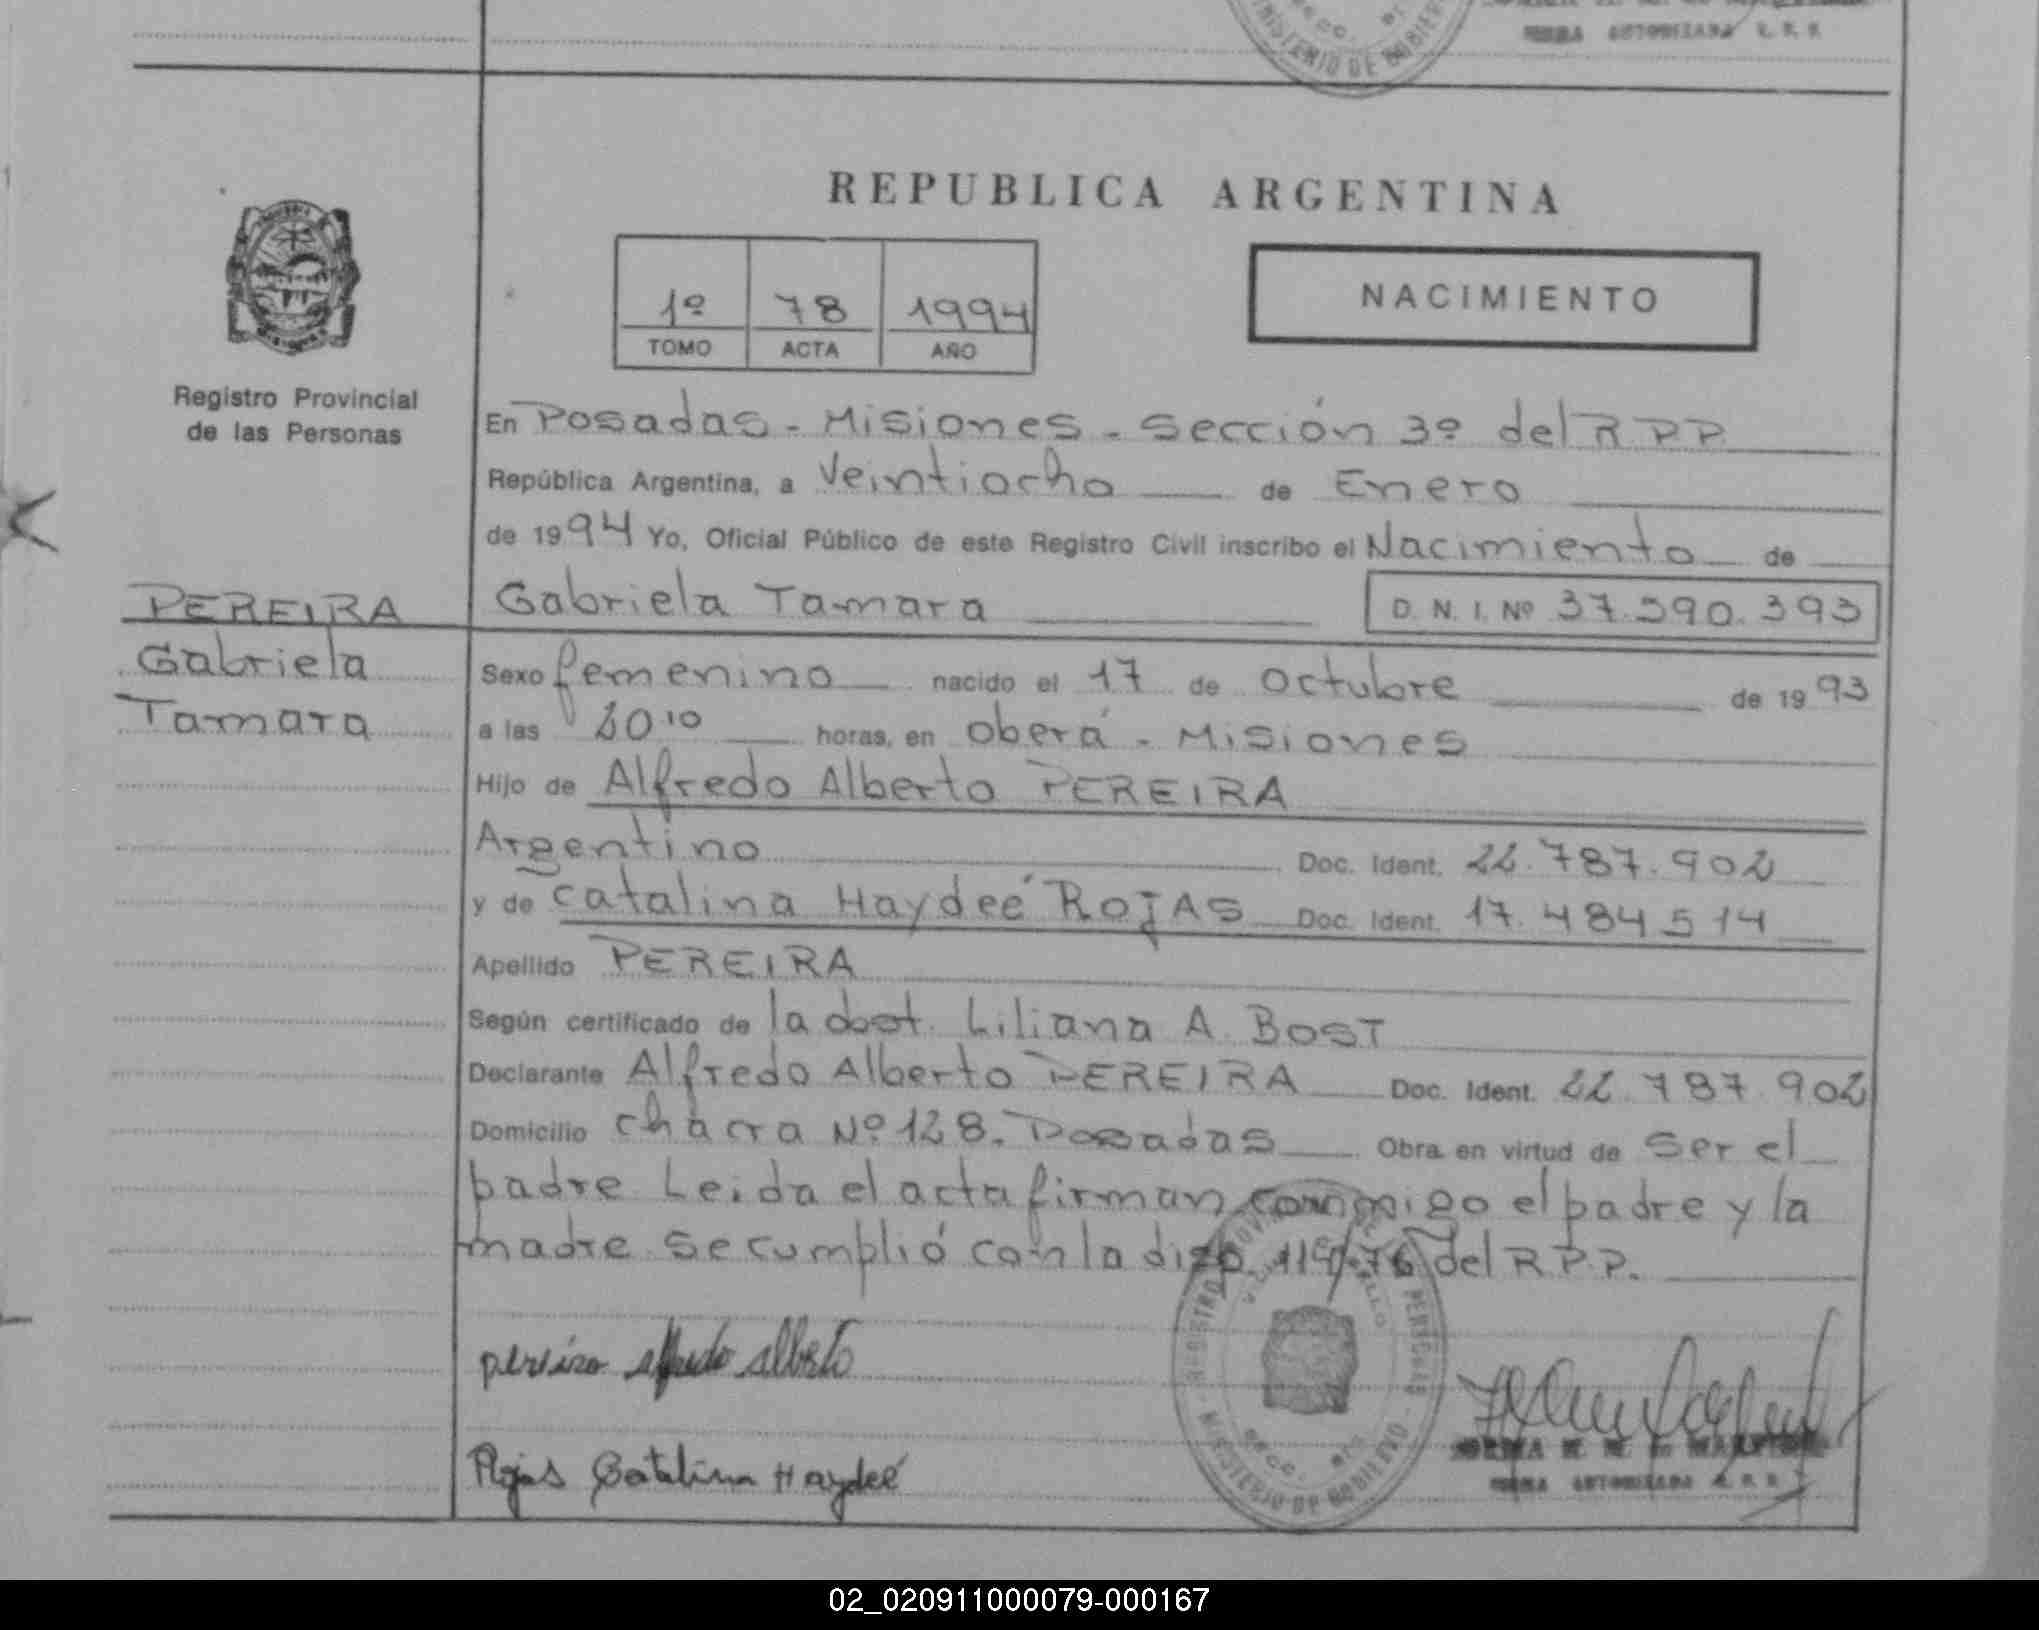 MINISTERIO DE GOBIERNO
FIRMA AUTORIZADA R. P. P.
REPUBLICA ARGENTINA
1º 78 1994
TOMO ACTA AÑO
NACIMIENTO
Registro Provincial
de las Personas
En Posadas - Misiones - Sección 3º del R P P
República Argentina, a Veintiocho de Enero
de 1994 Yo, Oficial Público de este Registro Civil inscribo el Nacimiento de
PEREIRA
Gabriela
Tamara
Gabriela Tamara D. N. I. Nº 37.590.393
Sexo femenino nacido el 17 de Octubre de 1993
a las 20 10 horas, en Oberá - Misiones
Hijo de Alfredo Alberto PEREIRA
Argentino Doc. Ident. 22.787.902
y de Catalina Haydeé ROJAS Doc. Ident. 17.484514
Apellido PEREIRA
Según certificado de la obst. Liliana A. BOST
Declarante Alfredo Alberto PEREIRA Doc. Ident. 22.787.902
Domicilio Chacra Nº 128. Posadas Obra en virtud de ser el
padre Leida el acta firman conmigo el padre y la
madre Se cumplió con la disp. 114/76 del R.P.P.
pereira alfredo alberto
Rojas Catalina Haydeé
REGISTRO PROVINCIAL DE LAS PERSONAS
MINISTERIO DE GOBIERNO
FIRMA AUTORIZADA R. P. P.
02_020911000079-000167